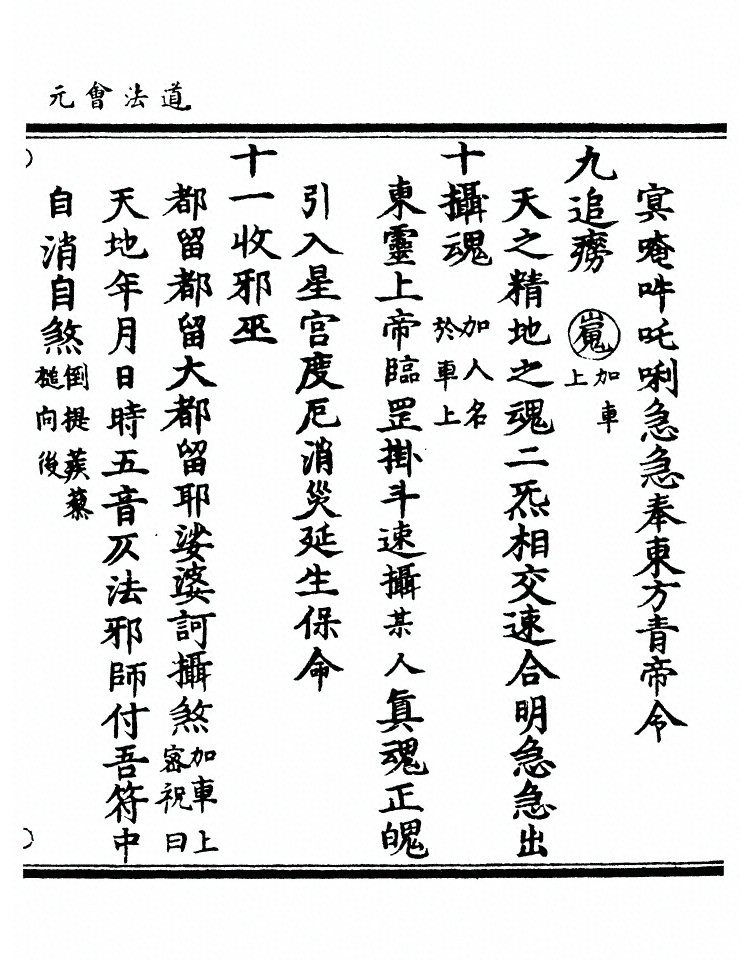 道法會元
冥唵吽吒唎急急奉東方青帝令
九追癆 嵬 加車上
天之精地之魂二炁相交速合明急急出
十攝魂 加人名於車上
東靈上帝臨罡掛斗速攝某人眞魂正魄
引入星宮度厄消災延生保命
十一收邪巫
都留都留大都留耶娑婆訶攝煞 加車上密祝曰
天地年月日時五音法邪師付吾符中
自消自煞 倒提蒺藜槌向後